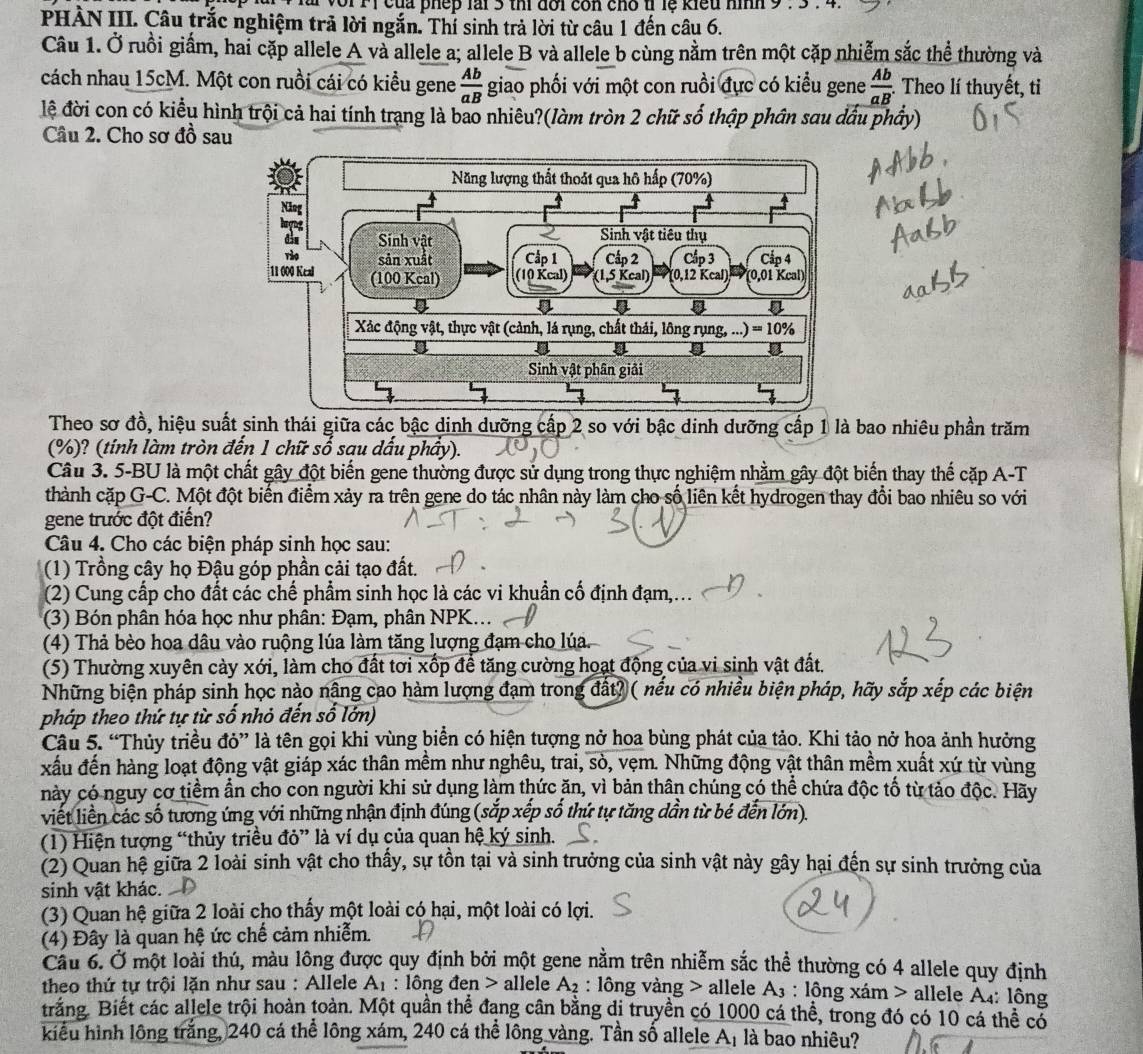 của phép lai 3 thì đời con cho tỉ lệ kiểu hình 9 : 3 : 4.
PHẦN III. Câu trắc nghiệm trả lời ngắn. Thí sinh trả lời từ câu 1 đến câu 6.
Câu 1. Ở ruồi giấm, hai cặp allele A và allele a; allele B và allele b cùng nằm trên một cặp nhiễm sắc thể thường và
cách nhau 15cM. Một con ruồi cái có kiểu gene Ab/aB giao phối với một con ruồi đực có kiểu gene Ab/aB. Theo lí thuyết, tỉ
lệ đời con có kiểu hình trội cả hai tính trạng là bao nhiêu?(làm tròn 2 chữ số thập phân sau dấu phẩy) 0,5
Câu 2. Cho sơ đồ sau
AAbb.
AaBb
AaBb
aaBB
Năng lượng thất thoát qua hô hấp (70%)
Năng
lượng
đầu
vào
11 000 Kcal
Sinh vật
sản xuất
(100 Kcal)
Sinh vật tiêu thụ
Cấp 1
(10 Kcal)
Cấp 2
(1,5 Kcal)
Cấp 3
(0,12 Kcal)
Cấp 4
(0,01 Kcal)
Xác động vật, thực vật (cành, lá rụng, chất thái, lông rụng, ...) = 10%
Sinh vật phân giải
Theo sơ đồ, hiệu suất sinh thái giữa các bậc dinh dưỡng cấp 2 so với bậc dinh dưỡng cấp 1 là bao nhiêu phần trăm
(%)? (tính làm tròn đến 1 chữ số sau dấu phẩy). 10,0
Câu 3. 5-BU là một chất gây đột biến gene thường được sử dụng trong thực nghiệm nhằm gây đột biến thay thế cặp A-T
thành cặp G-C. Một đột biến điểm xảy ra trên gene do tác nhân này làm cho số liên kết hydrogen thay đổi bao nhiêu so với
gene trước đột điến? A-T : 2 → 3 (1)
Câu 4. Cho các biện pháp sinh học sau:
(1) Trồng cây họ Đậu góp phần cải tạo đất. Đ
(2) Cung cấp cho đất các chế phẩm sinh học là các vi khuẩn cố định đạm,... Đ
(3) Bón phân hóa học như phân: Đạm, phân NPK... Đ
(4) Thả bèo hoa dâu vào ruộng lúa làm tăng lượng đạm cho lúa. S
(5) Thường xuyên cày xới, làm cho đất tơi xốp để tăng cường hoạt động của vi sinh vật đất. 123
Những biện pháp sinh học nào nâng cao hàm lượng đạm trong đất? ( nếu có nhiều biện pháp, hãy sắp xếp các biện
pháp theo thứ tự từ số nhỏ đến số lớn)
Câu 5. “Thủy triều đỏ” là tên gọi khi vùng biển có hiện tượng nở hoa bùng phát của tảo. Khi tảo nở hoa ảnh hưởng
xấu đến hàng loạt động vật giáp xác thân mềm như nghêu, trai, sò, vẹm. Những động vật thân mềm xuất xứ từ vùng
này có nguy cơ tiềm ẩn cho con người khi sử dụng làm thức ăn, vì bản thân chúng có thể chứa độc tố từ tảo độc. Hãy
viết liền các số tương ứng với những nhận định đúng (sắp xếp số thứ tự tăng dần từ bé đến lớn).
(1) Hiện tượng “thủy triều đỏ” là ví dụ của quan hệ ký sinh. S.
(2) Quan hệ giữa 2 loài sinh vật cho thấy, sự tồn tại và sinh trưởng của sinh vật này gây hại đến sự sinh trưởng của
sinh vật khác. Đ
(3) Quan hệ giữa 2 loài cho thấy một loài có hại, một loài có lợi. S 24
(4) Đây là quan hệ ức chế cảm nhiễm. Đ
Câu 6. Ở một loài thú, màu lông được quy định bởi một gene nằm trên nhiễm sắc thể thường có 4 allele quy định
theo thứ tự trội lặn như sau : Allele A₁ : lông đen > allele A₂ : lông vàng > allele A₃ : lông xám > allele A₄: lông
trắng. Biết các allele trội hoàn toàn. Một quần thể đang cân bằng di truyền có 1000 cá thể, trong đó có 10 cá thể có
kiểu hình lông trắng, 240 cá thể lông xám, 240 cá thể lông vàng. Tần số allele A₁ là bao nhiêu?